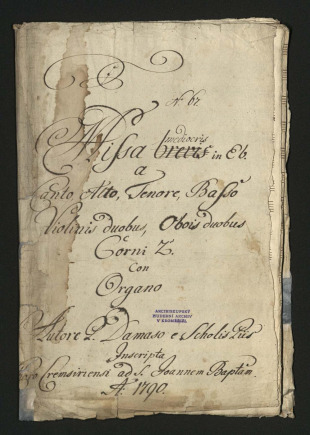 No 62
mediocris
Missa brevis in Eb.
a
Canto Alto, Tenore, Basso
Violinis duobus, Obois duobus
Corni 2.
Con
Organo
ARCIBISKUPSKÝ
HUDEBNÍ ARCHIV
V KROMĚŘÍŽI
Autore P. Damaso e Scholis Piis
Inscripta
Cremsiriensi ad S. Joannem Baptam
A. 1790.